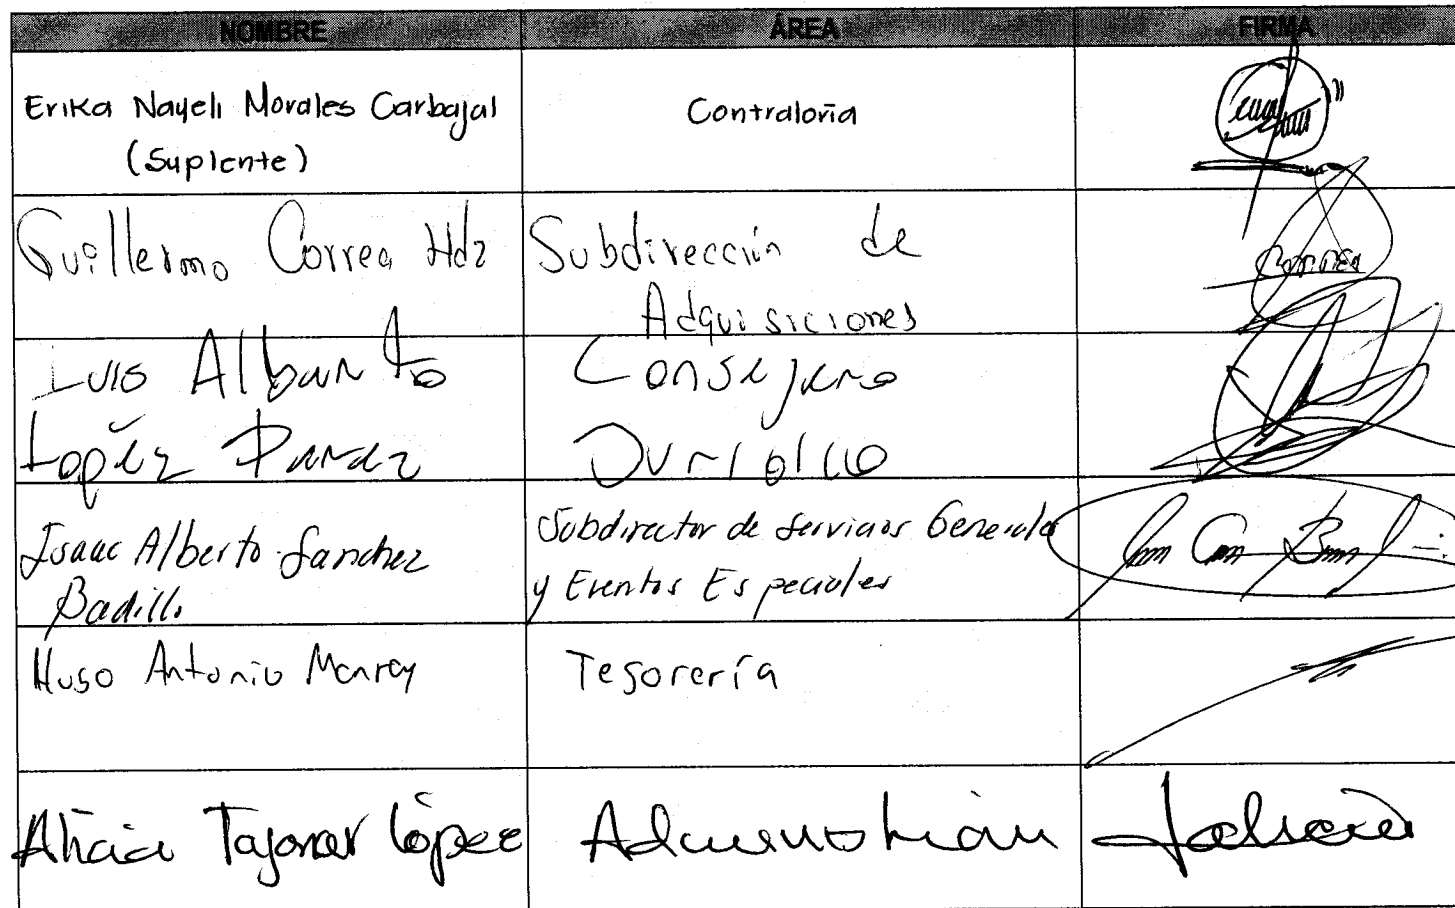 NOMBRE ÁREA FIRMA
Erika Nayeli Morales Carbajal Contraloría
(Suplente)
Guillermo Correa Hdz Subdirección de
Adquisiciones
Correa
Luis Alberto Consejero
López Pérez Jurídico
Isaac Alberto Sanchez Subdirector de Servicios Generales
Badillo y Eventos Especiales
Hugo Antonio Monroy Tesorería
Alicia López Administración